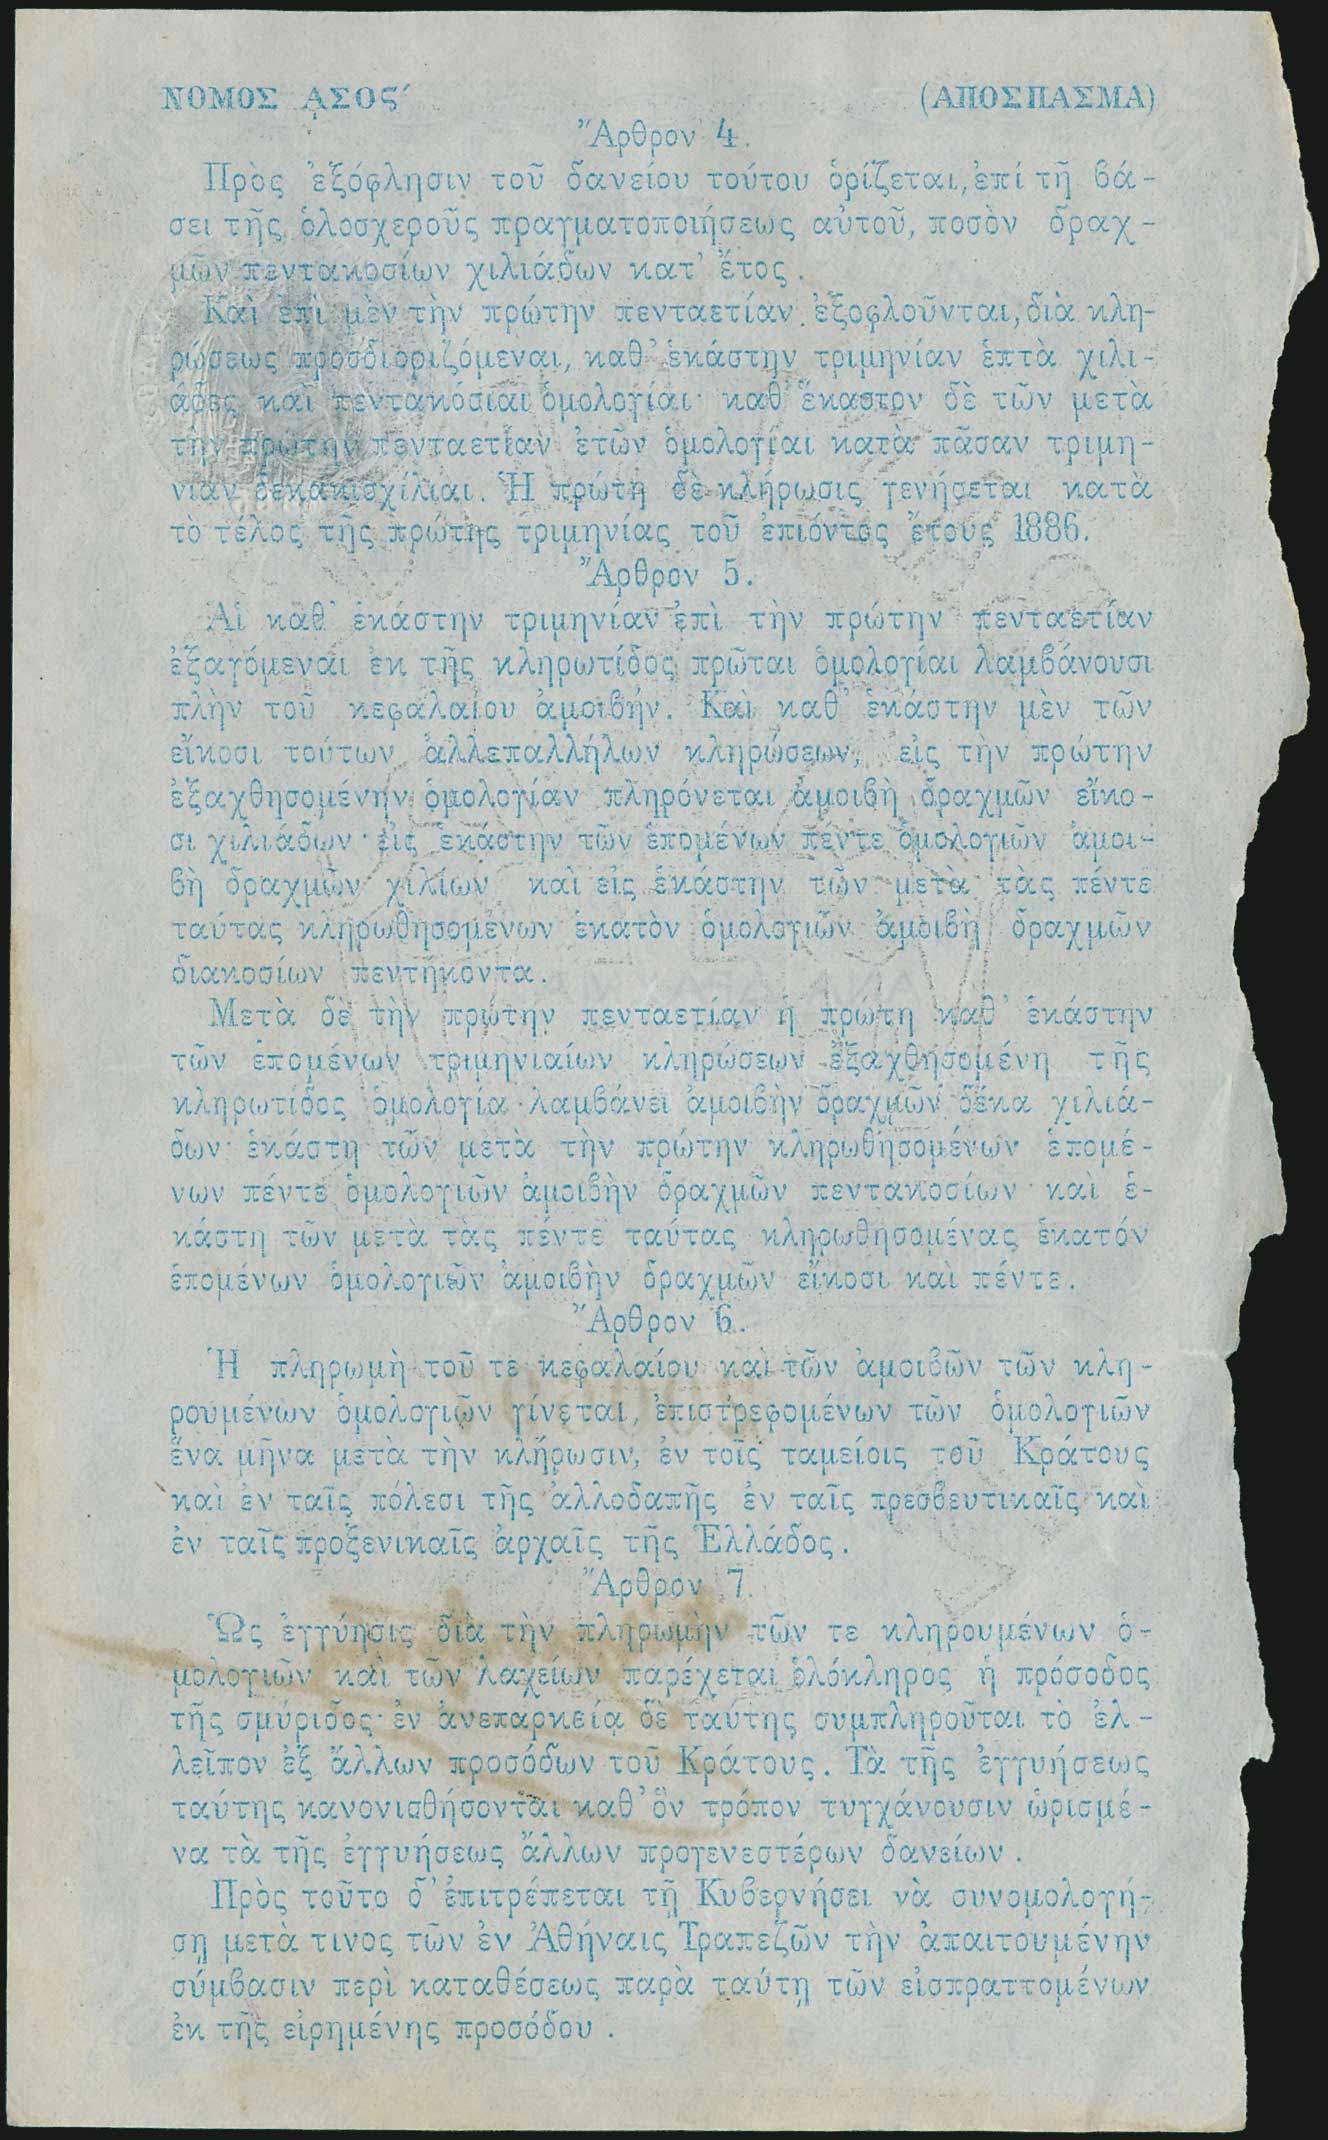 ΝΟΜΟΣ ͵ΑΣΟϚ´ (ΑΠΟΣΠΑΣΜΑ)
Ἄρθρον 4.
Πρὸς ἐξόφλησιν τοῦ δανείου τούτου ὁρίζεται, ἐπί τῇ βά-
σει τῆς ὁλοσχεροῦς πραγματοποιήσεως αὐτοῦ, ποσὸν δραχ-
μῶν πεντακοσίων χιλιάδων κατ' ἔτος.
Καὶ ἐπὶ μὲν τὴν πρώτην πενταετίαν ἐξοφλοῦνται, διὰ κλη-
ρώσεως προσδιοριζόμεναι, καθ' ἑκάστην τριμηνίαν ἑπτὰ χιλι-
άδες καὶ πεντακόσιαι ὁμολογίαι· καθ' ἕκαστον δὲ τῶν μετὰ
τὴν πρώτην πενταετίαν ἐτῶν ὁμολογίαι κατὰ πᾶσαν τριμη-
νίαν δεκακισχίλιαι. Ἡ πρώτη δὲ κλήρωσις γενήσεται κατὰ
τὸ τέλος τῆς πρώτης τριμηνίας τοῦ ἐπιόντος ἔτους 1886.
Ἄρθρον 5.
Αἱ καθ' ἑκάστην τριμηνίαν ἐπὶ τὴν πρώτην πενταετίαν
ἐξαγόμεναι ἐκ τῆς κληρωτίδος πρῶται ὁμολογίαι λαμβάνουσι
πλὴν τοῦ κεφαλαίου ἀμοιβήν. Καὶ καθ' ἑκάστην μὲν τῶν
εἴκοσι τούτων ἀλλεπαλλήλων κληρώσεων, εἰς τὴν πρώτην
ἐξαχθησομένην ὁμολογίαν πληρόνεται ἀμοιβὴ δραχμῶν εἴκο-
σι χιλιάδων· εἰς ἑκάστην τῶν ἑπομένων πέντε ὁμολογιῶν ἀμοι-
βὴ δραχμῶν χιλίων καὶ εἰς ἑκάστην τῶν μετὰ τὰς πέντε
ταύτας κληρωθησομένων ἑκατὸν ὁμολογιῶν ἀμοιβὴ δραχμῶν
διακοσίων πεντήκοντα.
Μετὰ δὲ τὴν πρώτην πενταετίαν ἡ πρώτη καθ' ἑκάστην
τῶν ἑπομένων τριμηνιαίων κληρώσεων ἐξαχθησομένη τῆς
κληρωτίδος ὁμολογία λαμβάνει ἀμοιβὴν δραχμῶν δέκα χιλιά-
δων· ἑκάστη τῶν μετὰ τὴν πρώτην κληρωθησομένων ἑπομέ-
νων πέντε ὁμολογιῶν ἀμοιβὴν δραχμῶν πεντακοσίων· καὶ ἑ-
κάστη τῶν μετὰ τὰς πέντε ταύτας κληρωθησομένας ἑκατόν
ἑπομένων ὁμολογιῶν ἀμοιβὴν δραχμῶν εἴκοσι καὶ πέντε.
Ἄρθρον 6.
Ἡ πληρωμὴ τοῦ τε κεφαλαίου καὶ τῶν ἀμοιβῶν τῶν κλη-
ρουμένων ὁμολογιῶν γίνεται, ἐπιστρεφομένων τῶν ὁμολογιῶν
ἕνα μῆνα μετὰ τὴν κλήρωσιν, ἐν τοῖς ταμείοις τοῦ Κράτους
καὶ ἐν ταῖς πόλεσι τῆς ἀλλοδαπῆς ἐν ταῖς πρεσβευτικαῖς καὶ
ἐν ταῖς προξενικαῖς ἀρχαῖς τῆς Ἑλλάδος.
Ἄρθρον 7.
Ὡς ἐγγύησις διὰ τὴν πληρωμὴν τῶν τε κληρουμένων ὁ-
μολογιῶν καὶ τῶν λαχείων παρέχεται ὁλόκληρος ἡ πρόσοδος
τῆς σμύριδος· ἐν ἀνεπαρκείᾳ δὲ ταύτης συμπληροῦται τὸ ἐλ-
λεῖπον ἐξ ἄλλων προσόδων τοῦ Κράτους. Τὰ τῆς ἐγγυήσεως
ταύτης κανονισθήσονται καθ' ὃν τρόπον τυγχάνουσιν ὡρισμέ-
να τὰ τῆς ἐγγυήσεως ἄλλων προγενεστέρων δανείων.
Πρὸς τοῦτο δ' ἐπιτρέπεται τῇ Κυβερνήσει νὰ συνομολογή-
σῃ μετὰ τινος τῶν ἐν Ἀθήναις Τραπεζῶν τὴν ἀπαιτουμένην
σύμβασιν περὶ καταθέσεως παρὰ ταύτῃ τῶν εἰσπραττομένων
ἐκ τῆς εἰρημένης προσόδου.